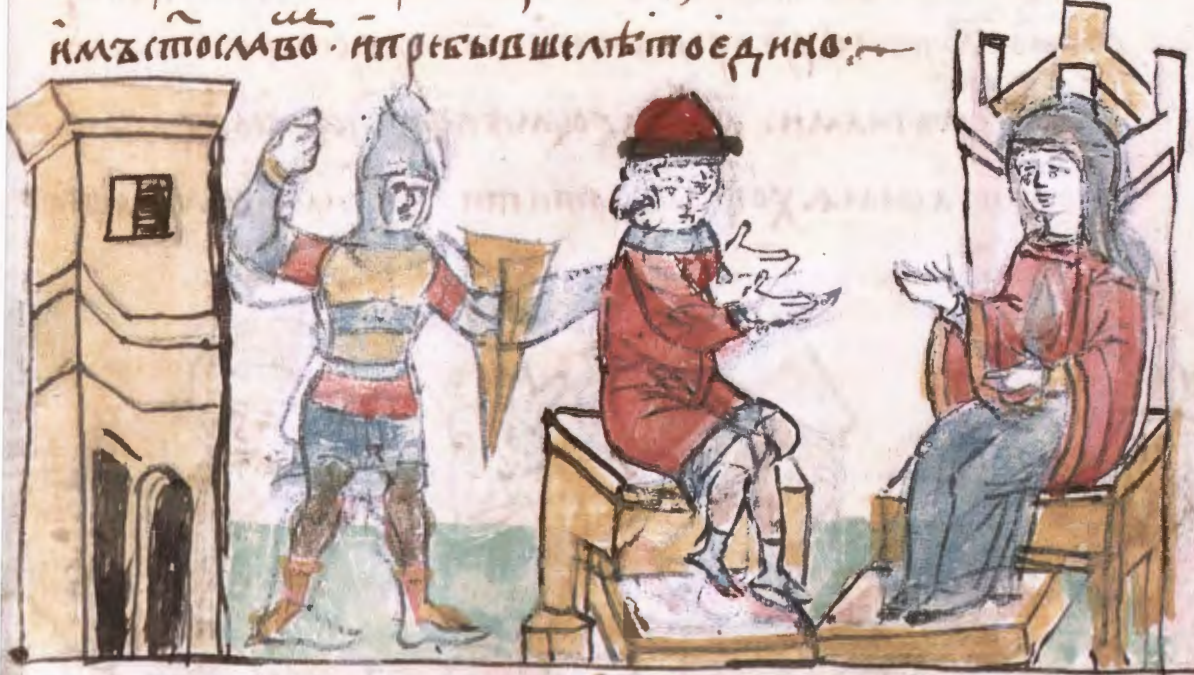 имъст҃ославоⷨ · ипребывшелѣтоедино:~